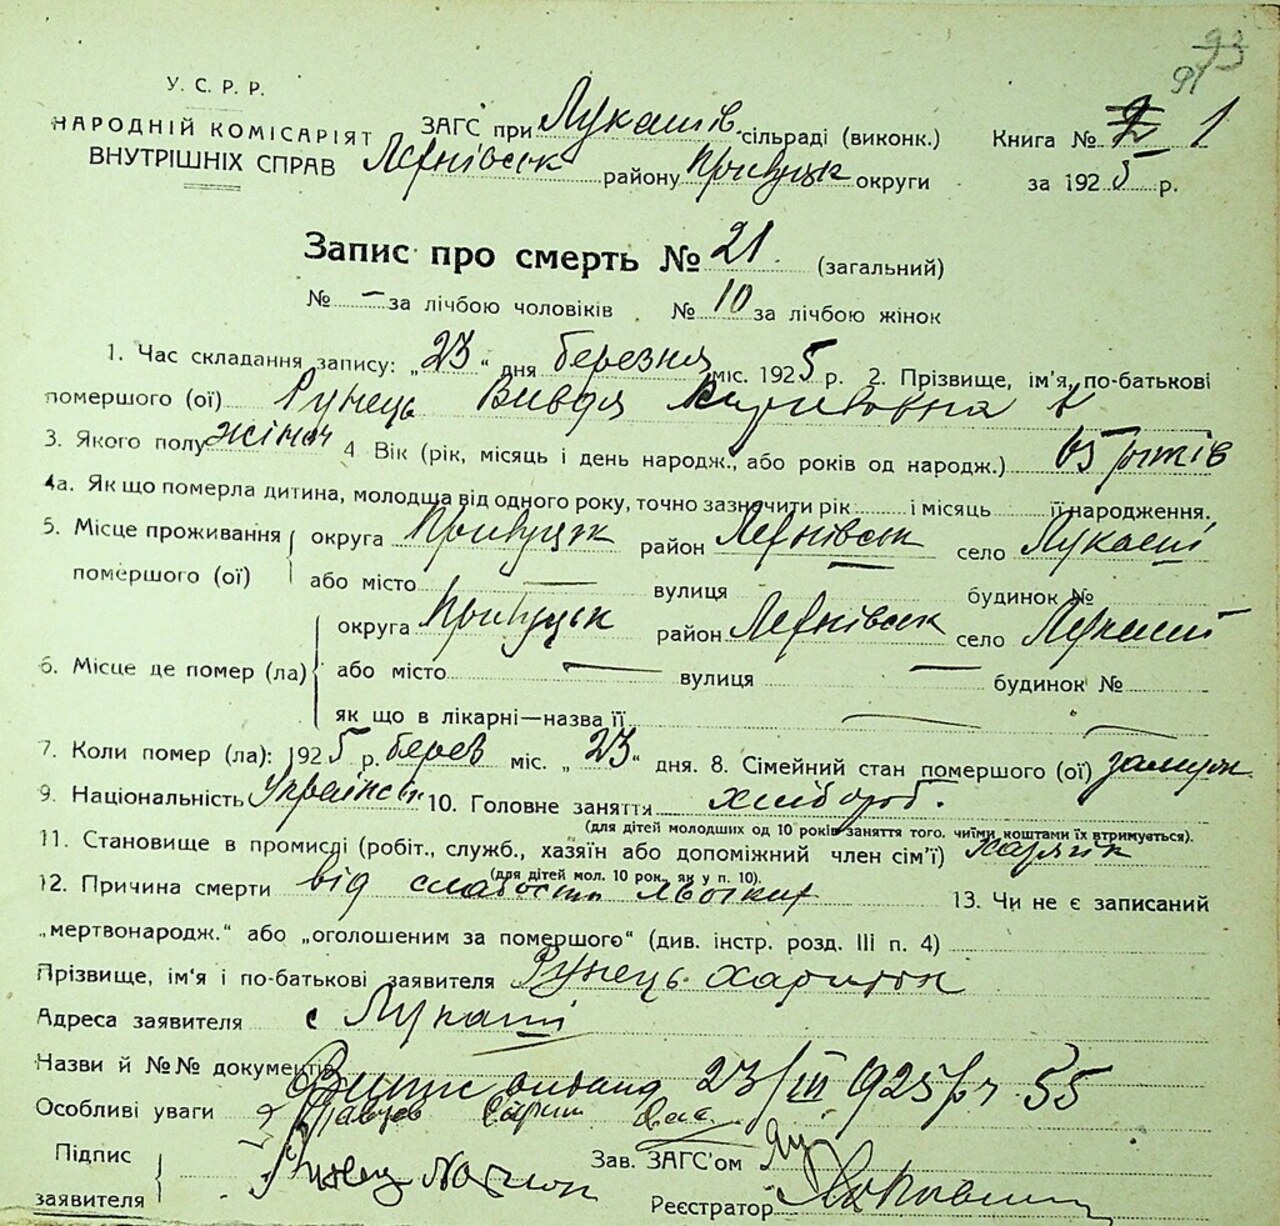 93
91
У. С. Р. Р.
НАРОДНІЙ КОМІСАРІЯТ
ВНУТРІШНІХ СПРАВ
ЗАГС при Лукашів. сільраді (виконк.) Книга № 1
району Прилуцьк округи за 1925 р.
Запис про смерть № 21. (загальний)
№ – за лічбою чоловіків . № 10 за лічбою жінок
1. Час складання запису: „23“ дня березня міс. 1925 р. 2. Прізвище, ім'я, по-батькові
помершого (ої) Рунець Вивдя
3. Якого полу жіноч 4 Вік (рік, місяць і день народж., або років од народж.) 65 років
4а. Як що померла дитина, молодша від одного року, точно зазначити рік і місяць її народження.
5. Місце проживання помершого (ої) округа Прилуцьк район село Лукаші
або місто — вулиця будинок №
6. Місце де помер (ла) округа Прилуцьк район село Лукаші
або місто — вулиця — будинок №
як що в лікарні—назва її —
7. Коли помер (ла): 1925 р. берез міс. „23“ дня. 8. Сімейний стан помершого (ої) замужн
9. Національність Українськ 10. Головне заняття хлібороб.
(для дітей молодших од 10 років заняття того, чиїми коштами їх втримується).
11. Становище в промислі (робіт., служб., хазяїн або допоміжний член сім'ї) хазяїн
(для дітей мол. 10 рок., як у п. 10).
12. Причина смерти від слабости льогких 13. Чи не є записаний
„мертвонародж.“ або „оголошеним за помершого“ (див. інстр. розд. III п. 4)
Прізвище, ім'я і по-батькові заявителя Рунець Харитон
Адреса заявителя с Лукаші
Назви й №№ документів Витяг видана 23/III 1925 р 55
Особливі уваги
Підпис заявителя Рунец
Зав. ЗАГС'ом
Реєстратор